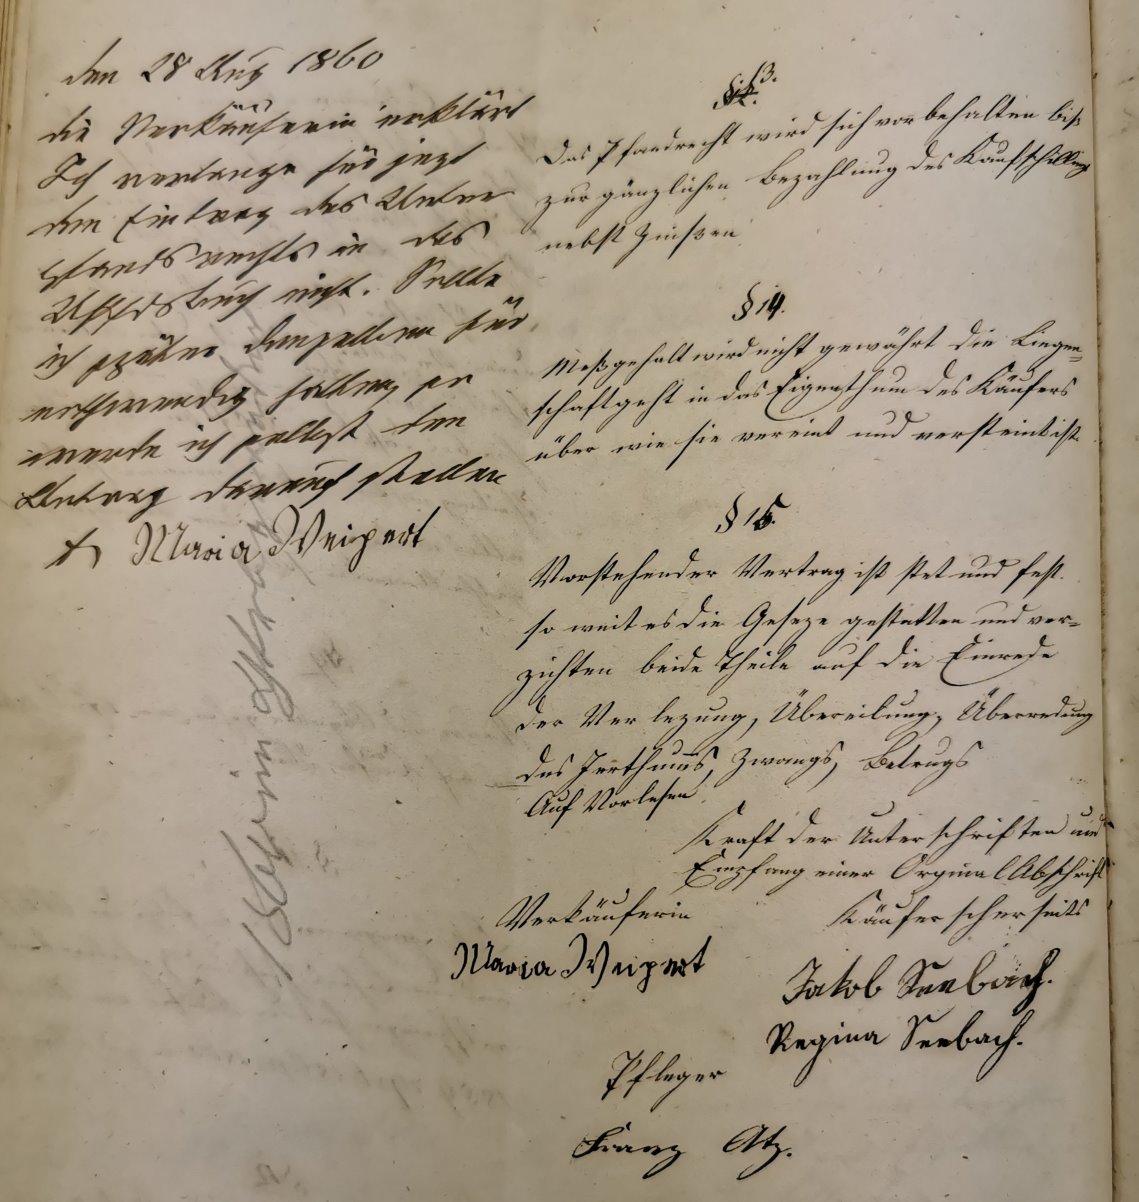 den 28 Aug 1860
die Verkäuferin erklärt
Ich verlange für jezt
den Eintrag des Unter
pfandsrechts in das
Pfandsbuch nicht. Sollte
ich später denselben für
nothwendig halten, so
werde ich selbst den
Antrag darauf stellen
Maria Weipert
§ 13.
Das Pfandrecht wird sich vorbehalten bis
zur gänzlichen Bezahlung des Kaufschillings
nebst Zinßen
§ 14.
Meßgehalt wird nicht gewährt die Liegen=
schaft geht in das Eigenthum des Käufers
über wie sie vereint und versteint ist.
§ 15.
Vorstehender Vertrag ist stet und fest.
so weit es die Geseze gestatten und ver=
zichten beide Theile auf die Einrede
der Verlezung, Übereilung, Überredung
des Irrthums, Zwangs, Betrugs
Auf Vorlesen.
Kraft der Unterschriften und
Empfang einer Orginal Abschrift
Verkäuferin
Käuferscherseits
Maria Weipert
Jakob Seebach.
Regina Seebach.
Pfleger
Franz Atz.